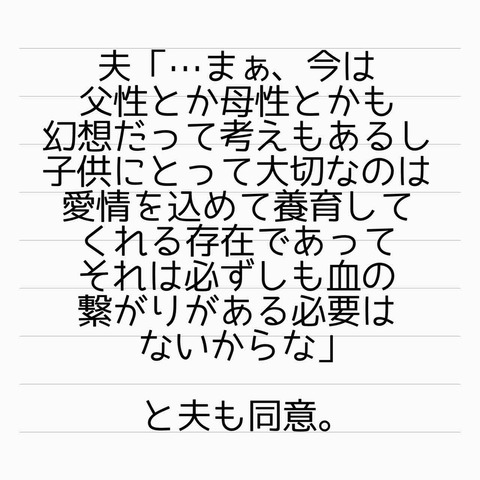 夫「…まぁ、今は
父性とか母性とかも
幻想だって考えもあるし
子供にとって大切なのは
愛情を込めて養育して
くれる存在であって
それは必ずしも血の
繋がりがある必要は
ないからな」
と夫も同意。